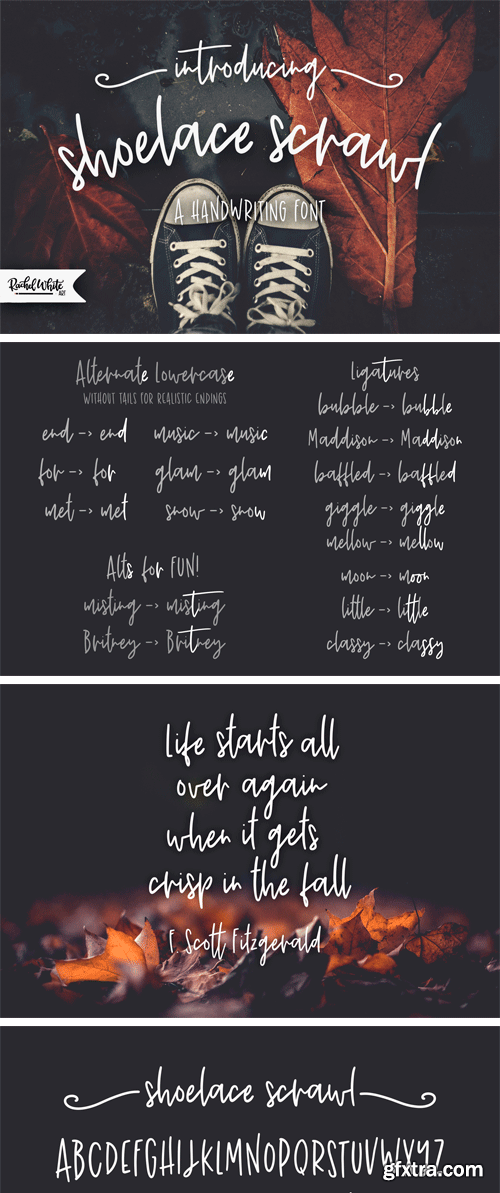 introducing
shoelace scrawl
A HANDWRITING FONT
Rachel White
ART
Alternate Lowercase
WITHOUT TAILS FOR REALISTIC ENDINGS
end -> end
music -> music
for -> for
glam -> glam
met -> met
snow -> snow
Alts for FUN!
misting -> misting
Britney -> Britney
ligatures
bubble -> bubble
Maddison -> Maddison
baffled -> baffled
giggle -> giggle
mellow -> mellow
moon -> moon
little -> little
classy -> classy
life starts all
over again
when it gets
crisp in the fall
F. Scott Fitzgerald
shoelace scrawl
ABCDEFGHIJKLMNOPQRSTUVWXYZ
gfxtra.com